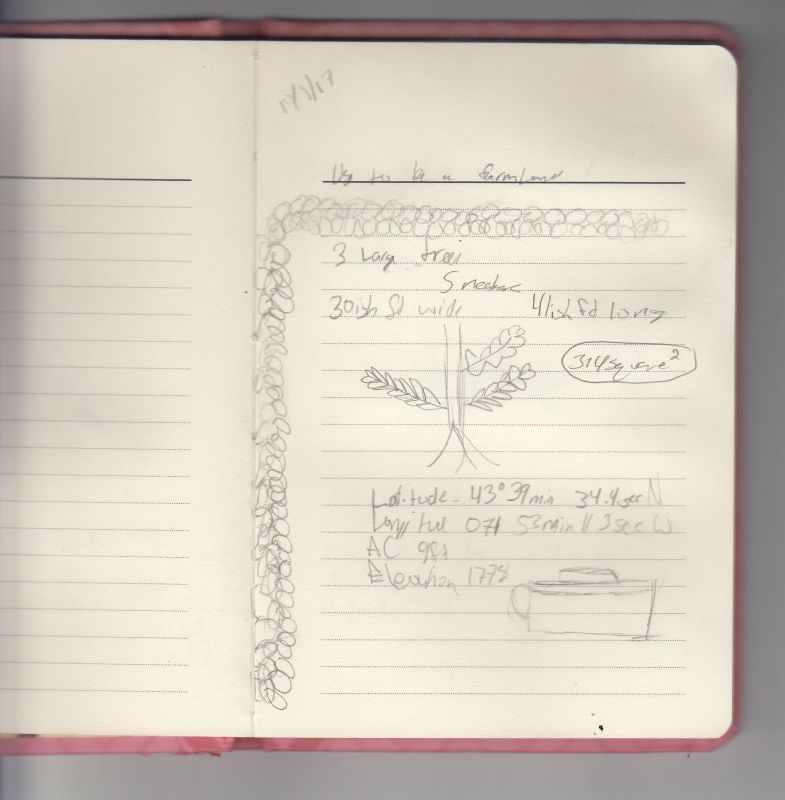 Use to be a farmland
3 Large trees
5 meters
30ish ft wide 41ish ft long
314square²
Latitude - 43° 39min 34.4sec N
Longitud 071 53min 11 3sec W
AC 98t
Elevation 1778